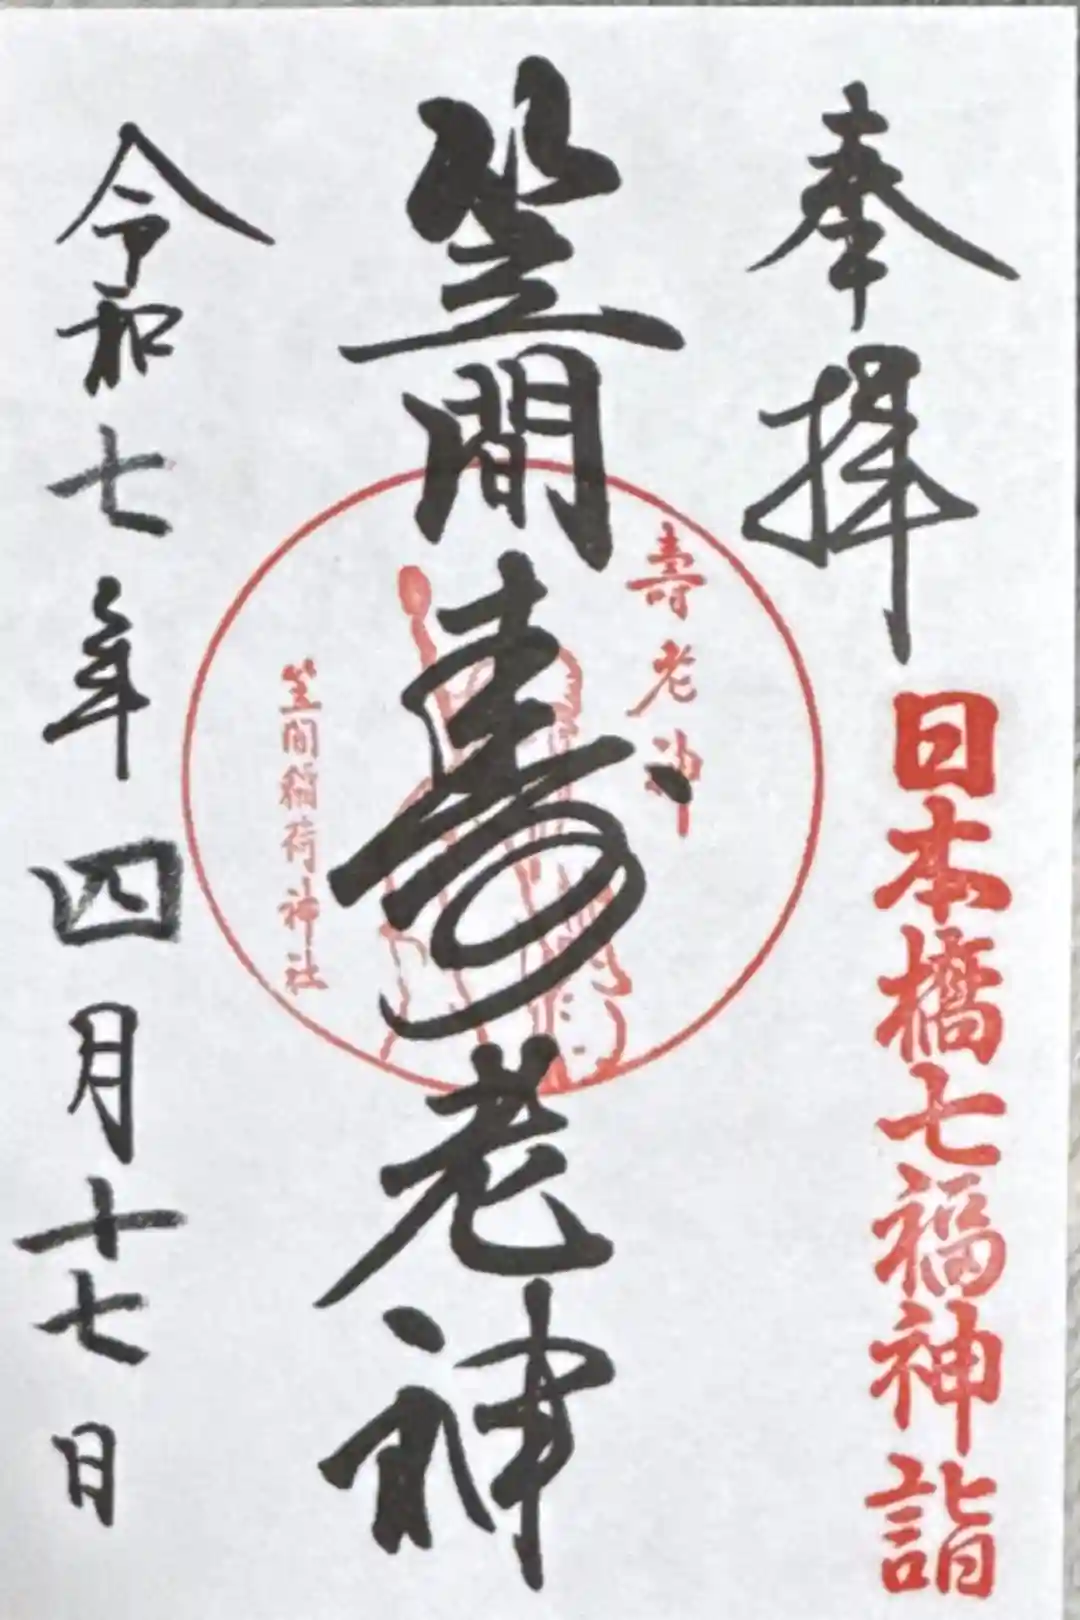 奉拝
日本橋七福神詣
笠間寿老神
壽老神
笠間稲荷神社
令和七年四月十七日